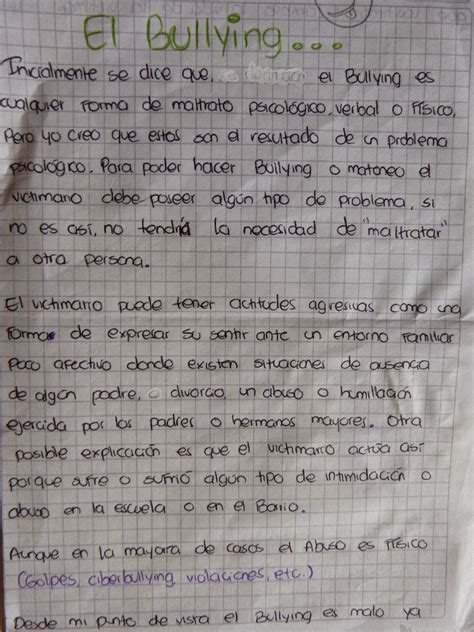 El Bullying...
Inicialmente se dice que, el Bullying es
cualquier forma de maltrato psicológico, verbal o Físico,
Pero yo creo que estos son el resultado de un problema
psicológico. Para poder hacer Bullying o matoneo el
victimario debe poseer algún tipo de problema, si
no es así, no tendría la necesidad de "maltratar"
a otra persona.
El victimario puede tener actitudes agresivas como una
forma de expresar su sentir ante un entorno familiar
poco afectivo donde existen situaciones de ausencia
de algún padre, o divorcio, un abuso o humillación
ejercida por los padres o hermanos mayores. Otra
posible explicación es que el victimario actúa así
porque sufre o sufrió algún tipo de intimidación o
abuso en la escuela o en el Barrio.
Aunque en la mayoria de casos el Abuso es Físico
(Golpes, ciberbullying, violaciones, etc.)
Desde mi punto de vista el Bullying es malo ya